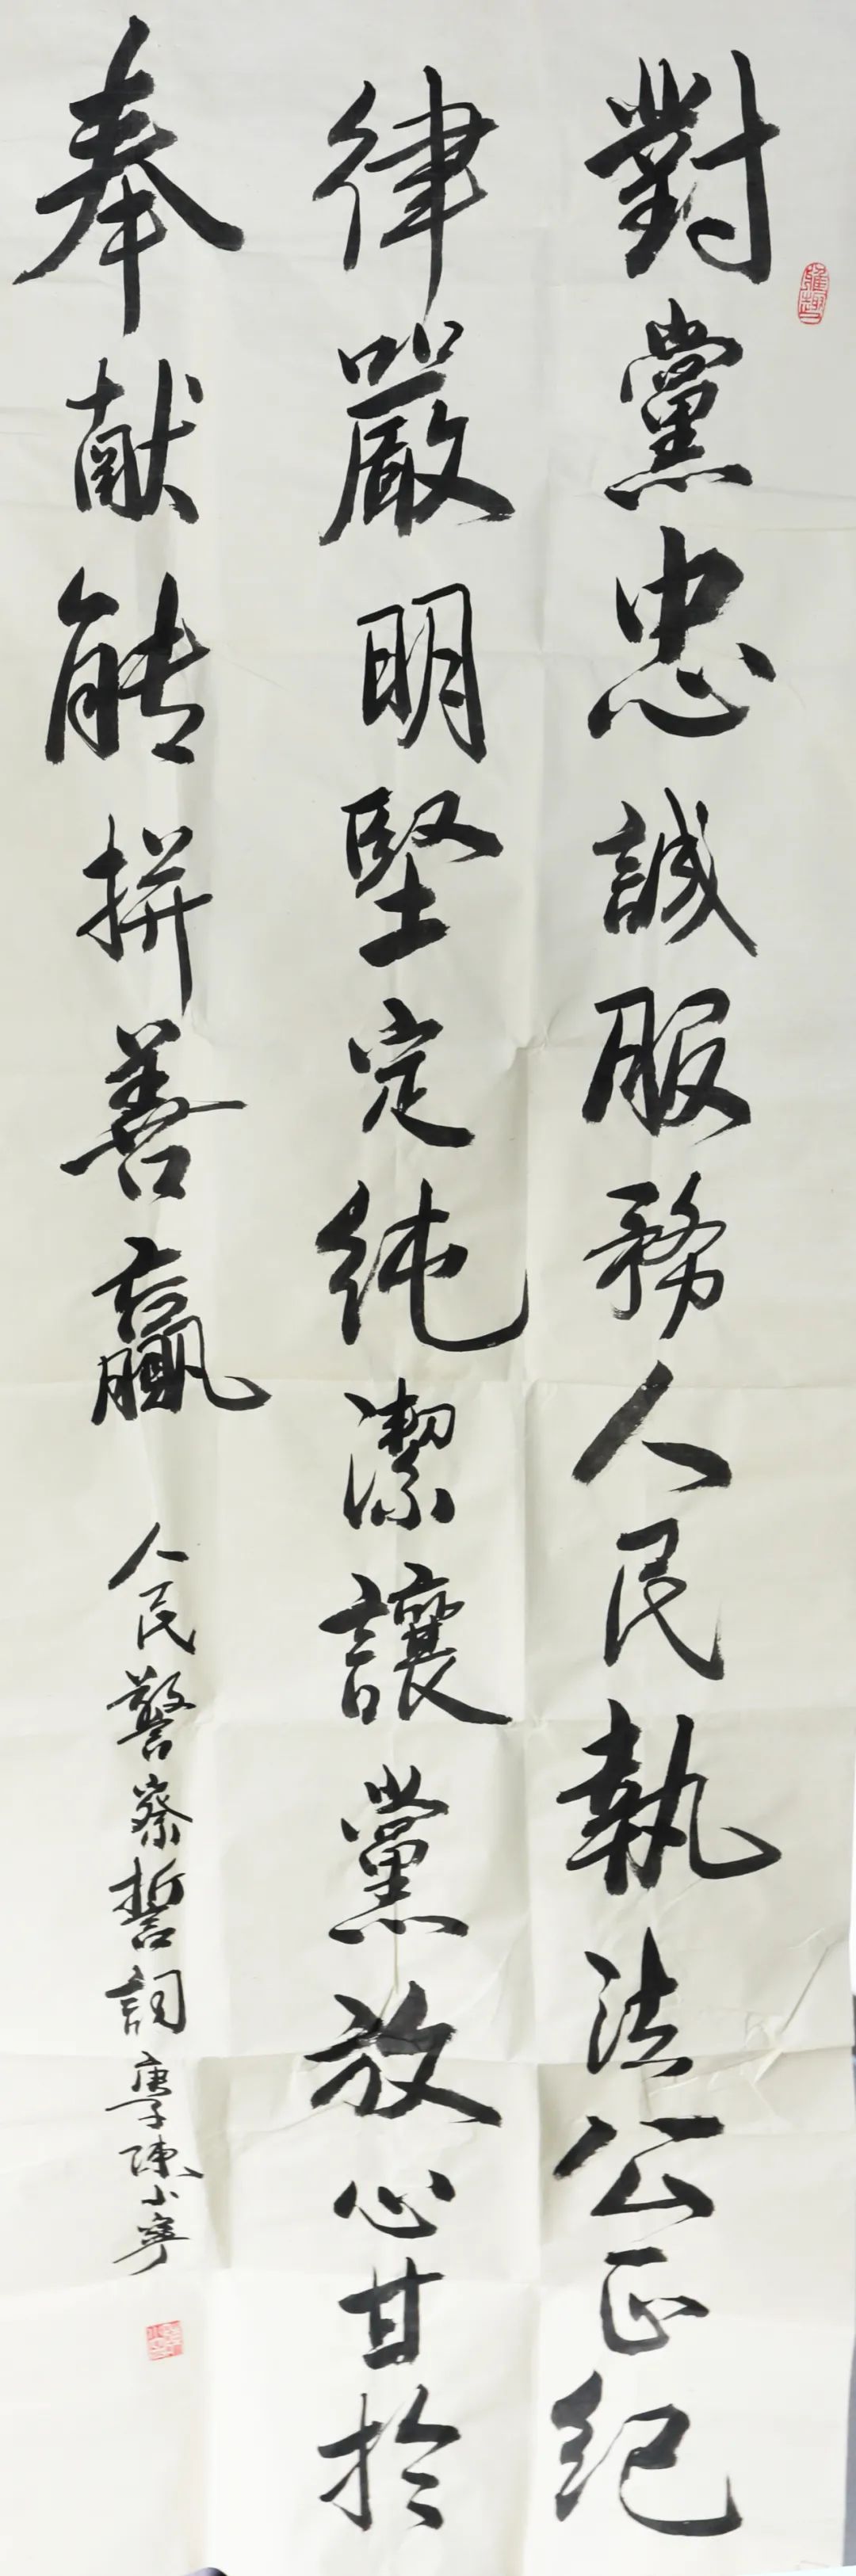 對黨忠誠服務人民執法公正紀
律嚴明堅定純潔讓黨放心甘於
奉献能拼善贏
人民警察誓詞庚子陳小寧